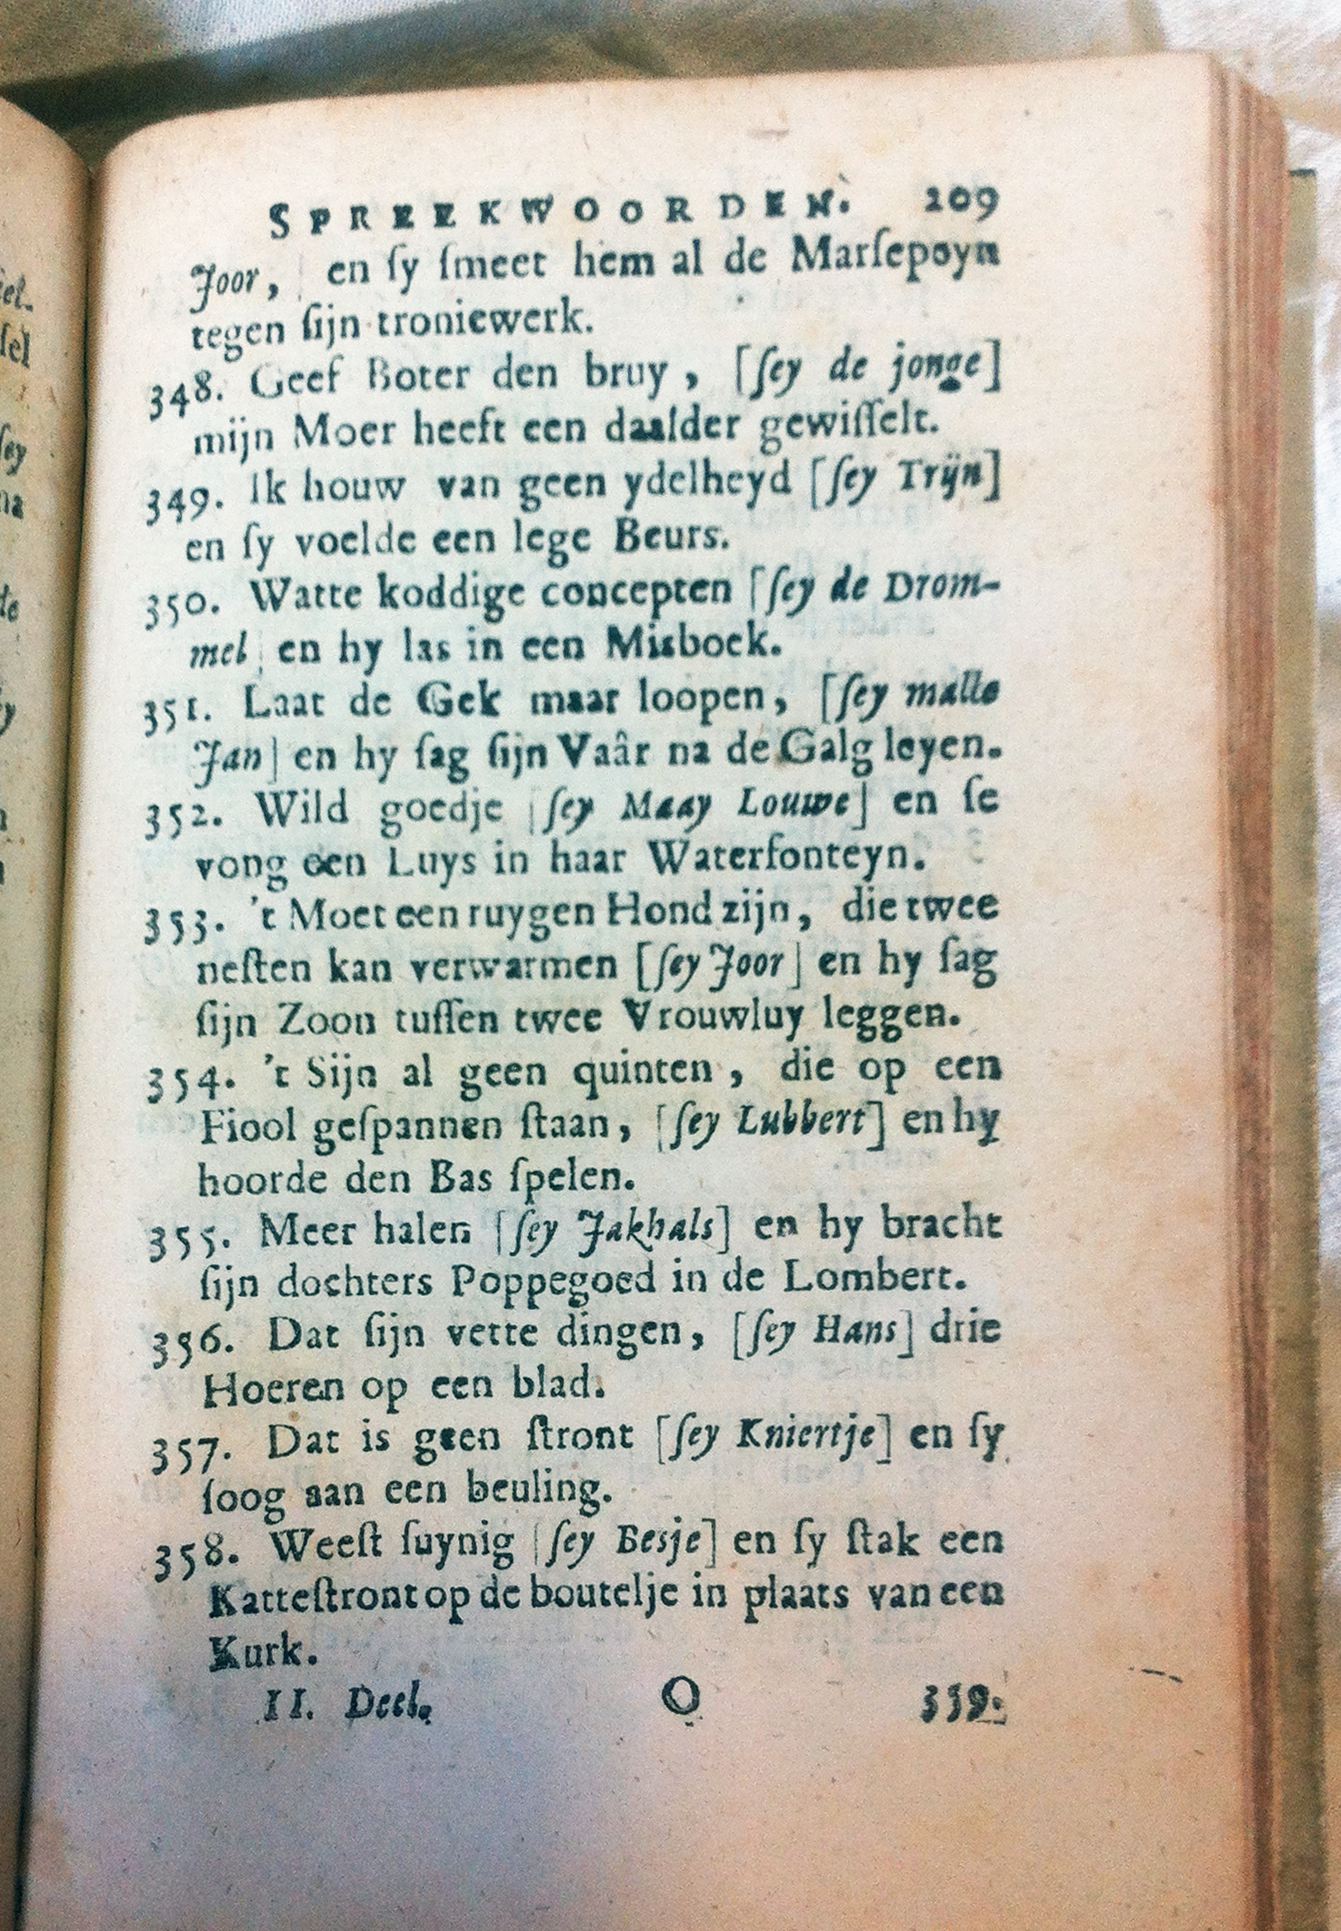 SPREEKWOORDEN. 209
Joor, en ſy ſmeet hem al de Marſepeyn
tegen ſijn troniewerk.
348. Geef Boter den bruy, [ſey de jonge]
mijn Moer heeft een daalder gewiſſelt.
349. Ik houw van geen ydelheyd [ſey Trijn]
en ſy voelde een lege Beurs.
350. Watte koddige concepten [ſey de Drom-
mel en hy las in een Misboek.
351. Laat de Gek maar loopen, [ſey malle
Jan] en hy ſag ſijn Vaâr na de Galg leyen.
352. Wild goedje [ſey Maay Louwe] en ſe
vong een Luys in haar Waterfonteyn.
353. 't Moet een ruygen Hond zijn, die twee
neſten kan verwarmen [ſey Joor] en hy ſag
ſijn Zoon tuſſen twee Vrouwluy leggen.
354. 't Sijn al geen quinten, die op een
Fiool geſpannen ſtaan, [ſey Lubbert] en hy
hoorde den Bas ſpelen.
355. Meer halen [ſey Jakhals] en hy bracht
ſijn dochters Poppegoed in de Lombert.
356. Dat ſijn vette dingen, [ſey Hans] drie
Hoeren op een blad.
357. Dat is geen ſtront [ſey Kniertje] en ſy
ſoog aan een beuling.
358. Weeſt ſuynig [ſey Besje] en ſy ſtak een
Katteſtront op de boutelje in plaats van een
Kurk.
II. Deel. O 359.